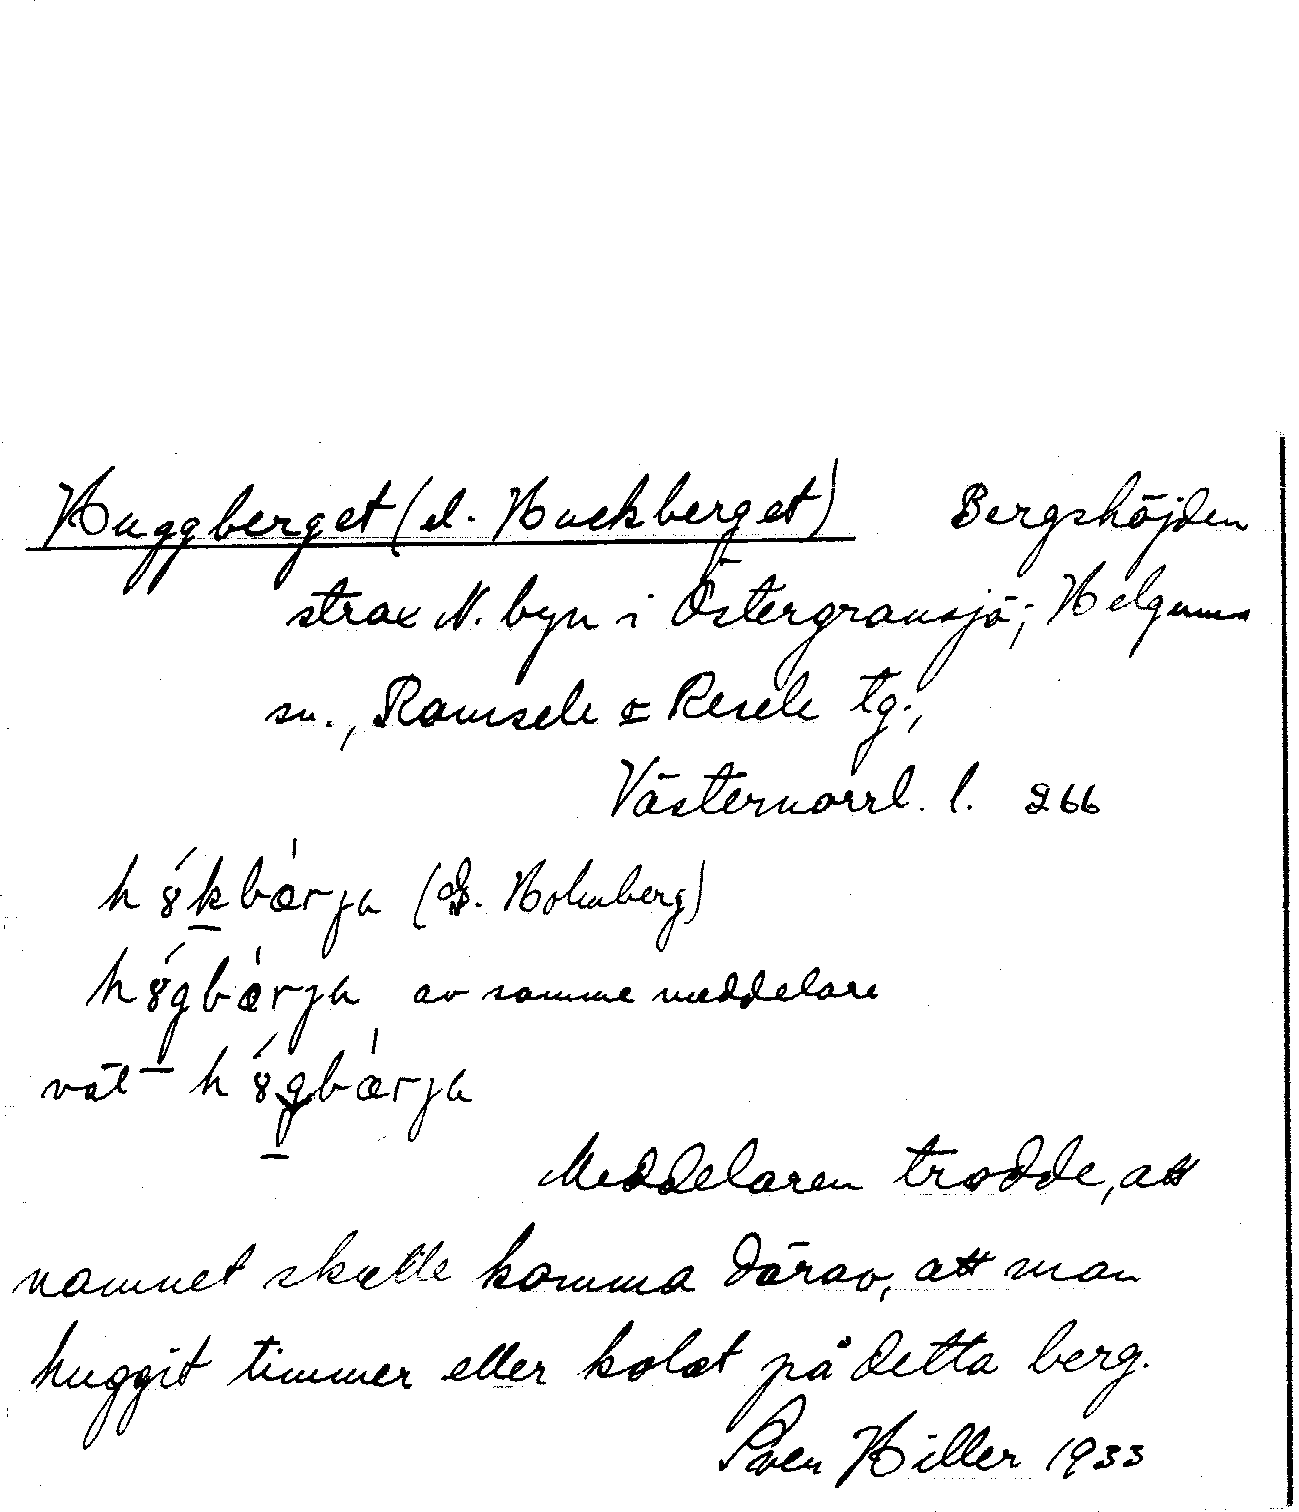 Huggberget (el. Huckberget) Bergshöjden
strax N. byn i Östergransjö; Helgums
sn., Ramsele & Resele tg.,
Västernorrl. l. 266
hȣ́kbæ̀rja ( Holmberg)
hȣ́gbæ̀rja av samme meddelare
väl hȣ́gbæ̀rja
Meddelaren trodde, att
namnet skulle komma därav, att man
huggit timmer eller kolat på detta berg.
Sven Hiller 1933